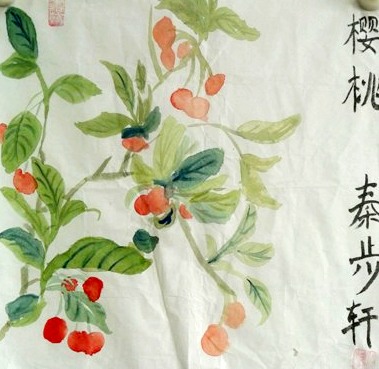 樱桃 秦步轩